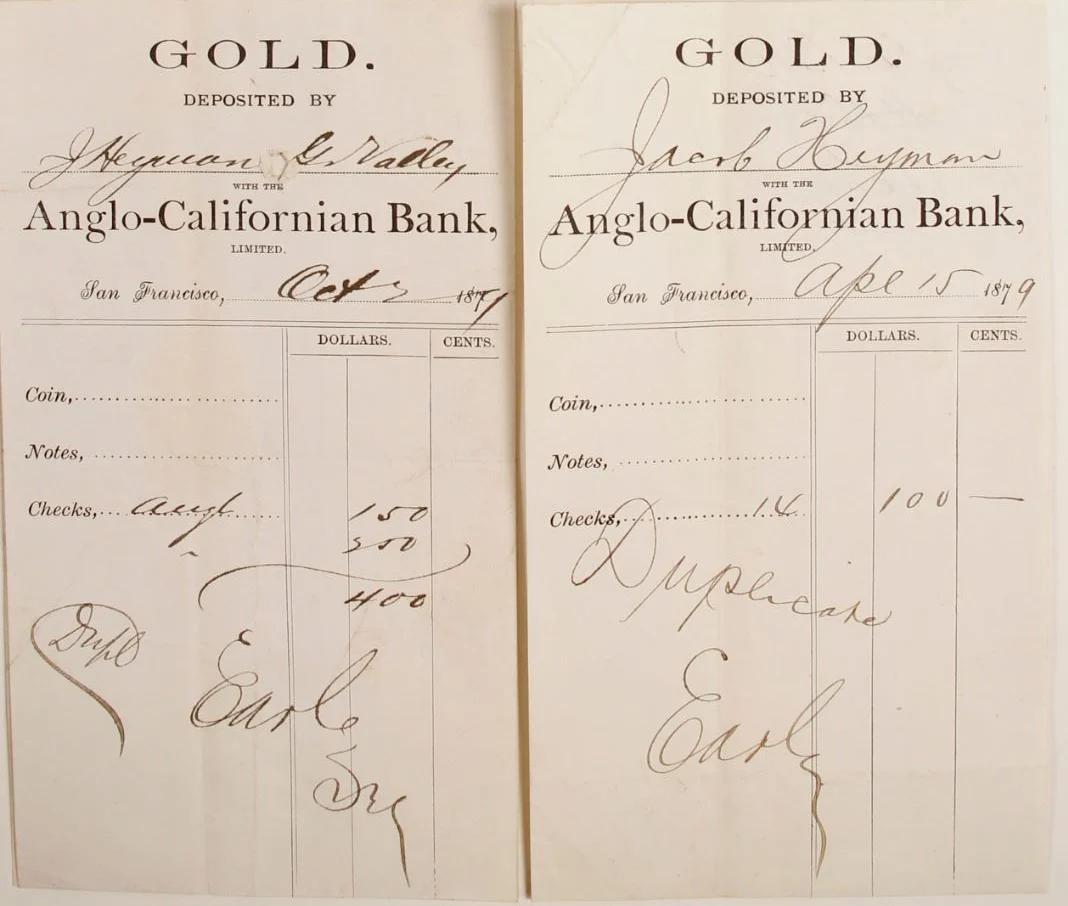 GOLD.
DEPOSITED BY
J Heyman G. Valley
WITH THE
Anglo-Californian Bank,
LIMITED.
San Francisco, Oct 187
DOLLARS. CENTS.
Coin,
Notes,
Checks, 150
400
Dupl
Earl
GOLD.
DEPOSITED BY
Jacob Heyman
WITH THE
Anglo-Californian Bank,
LIMITED.
San Francisco, Apl 15 1879
DOLLARS. CENTS.
Coin,
Notes,
Checks, 14 100 —
Duplicate
Earl